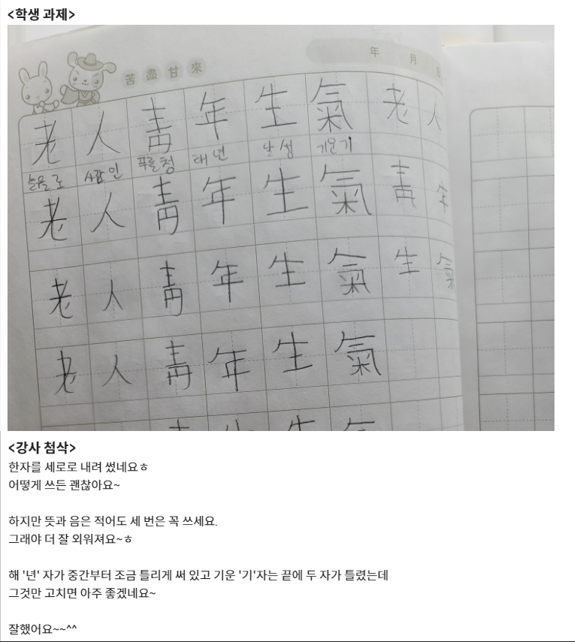 <학생 과제>
苦盡甘來
年 月
老 人 靑 年 生 氣 老 人
늙을 로 사람 인 푸를 청 해 년 날 생 기운 기
老 人 靑 年 生 氣 靑 年
老 人 靑 年 生 氣 生 氣
老 人 靑 年 生 氣
<강사 첨삭>
한자를 세로로 내려 썼네요ㅎ
어떻게 쓰든 괜찮아요~
하지만 뜻과 음은 적어도 세 번은 꼭 쓰세요.
그래야 더 잘 외워져요~ㅎ
해 '년' 자가 중간부터 조금 틀리게 써 있고 기운 '기'자는 끝에 두 자가 틀렸는데
그것만 고치면 아주 좋겠네요~
잘했어요~~^^